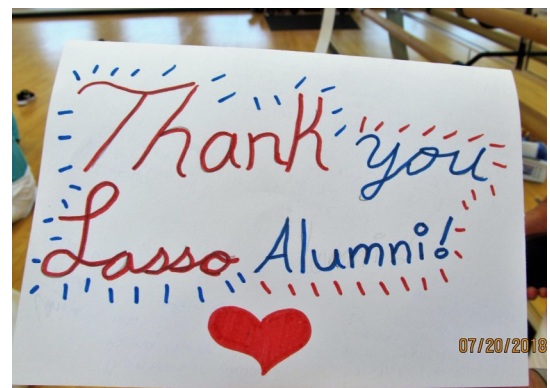 Thank you
Lasso Alumni!
07/20/2018